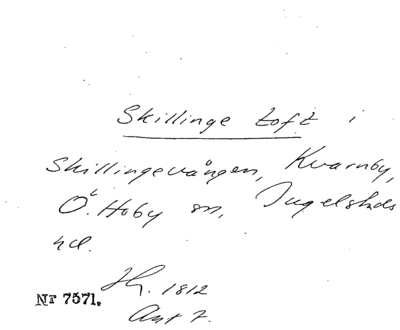 Skillinge toft i
Skillingevången, Kvarnby,
Ö. Hoby sn, Ingelstads
hd.
1812
Akt 7.
Nr 7571.